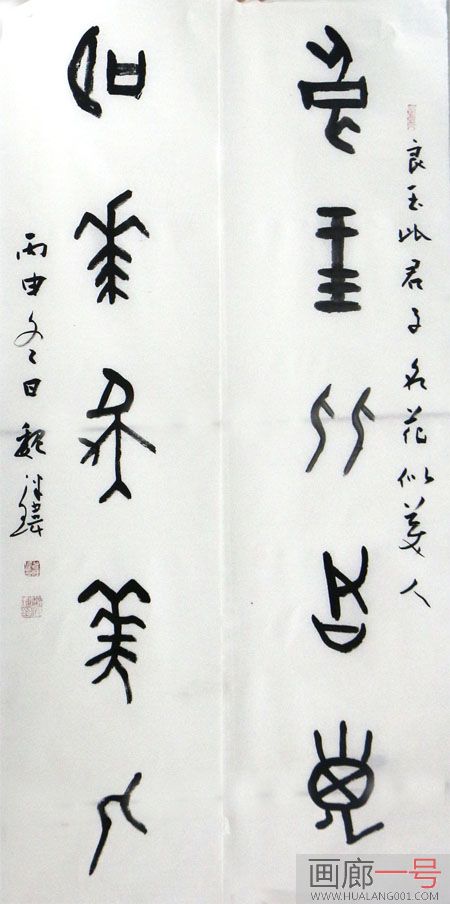 良玉比君子名花似美人
良玉比君子
名花似美人
丙申冬日魏
画廊一号
WWW.HUALANG001.COM